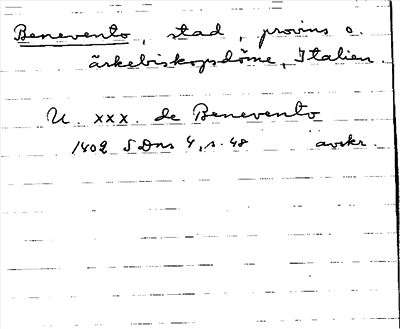 Benevento, stad, provins o.
ärkebiskopsdöme, Italien.
U. xxx. de Benevento
1402 SDns 4, s. 48 avskr.